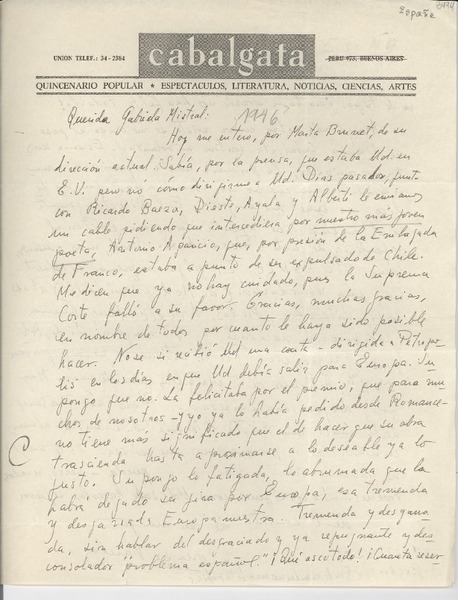 España
cabalgata
UNION TELEF.: 34 - 2364
PERU 973, BUENOS AIRES
QUINCENARIO POPULAR ★ ESPECTACULOS, LITERATURA, NOTICIAS, CIENCIAS, ARTES
Querida Gabriela Mistral: 1946
Hoy me entero, por Marta Brunet, de su
dirección actual. Sabía, por la prensa, que estaba Ud. en
E.U. pero no cómo dirigirme a Ud. Días pasados, junto
con Ricardo Baeza, Dieste, Ayala y Alberti le enviamos
un cable pidiendo que intercediera por nuestro más joven
poeta, Antonio Aparicio, que, por presión de la Embajada
de Franco, estaba a punto de ser expulsado de Chile.
Me dicen que ya no hay cuidado, pues la Suprema
Corte falló a su favor. Gracias, muchas gracias,
en nombre de todos por cuanto le haya sido posible
hacer. No se si recibió Ud una carta - dirigida a Petropo-
lis en los días en que Ud debía salir para Europa. Su-
pongo que no. La felicitaba por el premio, que para mu-
chos de nosotros - y yo ya lo había pedido desde Romance -
no tiene más significado que el de hacer que su obra
trascienda hasta aproximarse a lo deseable y a lo
justo. Supongo lo fatigada, lo abrumada que la
habrá dejado su gira por Europa, esa tremenda
y desgarrada Europa nuestra. Tremenda y desgarra-
da, sin hablar del desgraciado y ya repugnante y des-
consolador "problema español." ¡Qué asco todo! ¡Cuanta reser-